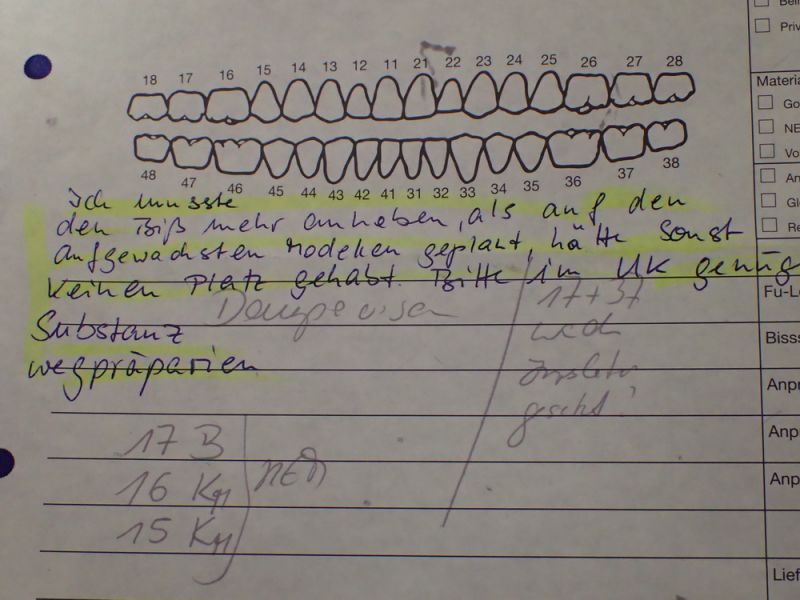 18 17 16 15 14 13 12 11 21 22 23 24 25 26 27 28
48 47 46 45 44 43 42 41 31 32 33 34 35 36 37 38
Ich musste
den Biß mehr anheben, als auf den
aufgewachsten Modellen geplant, hätte sonst
keinen Platz gehabt. Bitte im UK genüg
Substanz
wegpräparien
17+37
17 B
16 K
15 K
NEM
Priv
Materia
Go
NE
Vo
An
Gl
Re
Fu-Lö
Bisss
Anpr
Anpr
Anp
Lief